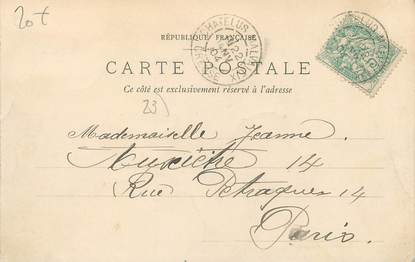 20+
RÉPUBLIQUE FRANÇAISE
CARTE POSTALE
Ce côté est exclusivement réservé à l'adresse
23
Mademoiselle Jeanne
14
Rue 14
Paris